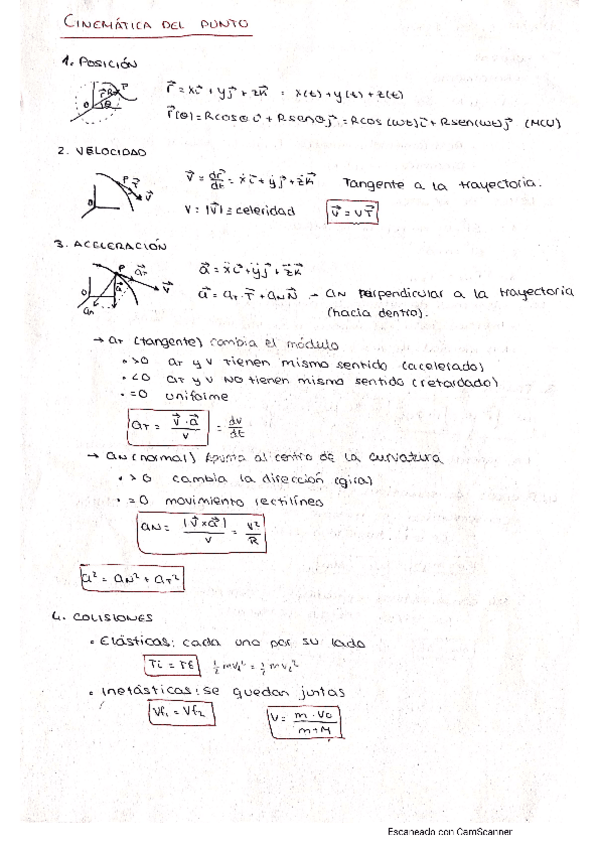 CINEMÁTICA DEL PUNTO
1. POSICIÓN
r⃗ = xi⃗ + yj⃗ + zk⃗ = x(t) + y(t) + z(t)
r⃗(θ) = Rcosθ i⃗ + Rsenθ j⃗ = Rcos(ωt) i⃗ + Rsen(ωt) j⃗ (MCU)
2. VELOCIDAD
v⃗ = dr⃗/dt = ẋi⃗ + ẏj⃗ + żk⃗ Tangente a la trayectoria.
v = |v⃗| ≡ celeridad v⃗ = vT⃗
3. ACELERACIÓN
a⃗ = ẍi⃗ + ÿj⃗ + z̈k⃗
a⃗ = aT · T⃗ + aN N⃗ → aN perpendicular a la trayectoria
(hacia dentro).
→ aT (tangente) cambia el módulo
• >0 aT y v tienen mismo sentido (acelerado)
• <0 aT y v NO tienen mismo sentido (retardado)
• =0 uniforme
aT = v⃗·a⃗/v = dv/dt
→ aN (normal) Apunta al centro de la curvatura
• >0 cambia la dirección (gira)
• =0 movimiento rectilíneo
aN = |v⃗×a⃗|/v = v²/R
a² = aN² + aT²
4. COLISIONES
• Elásticas: cada uno por su lado
• Inelásticas: se quedan juntas
Vf₁ = Vf₂ V = m·V0/m+M
Escaneado con CamScanner